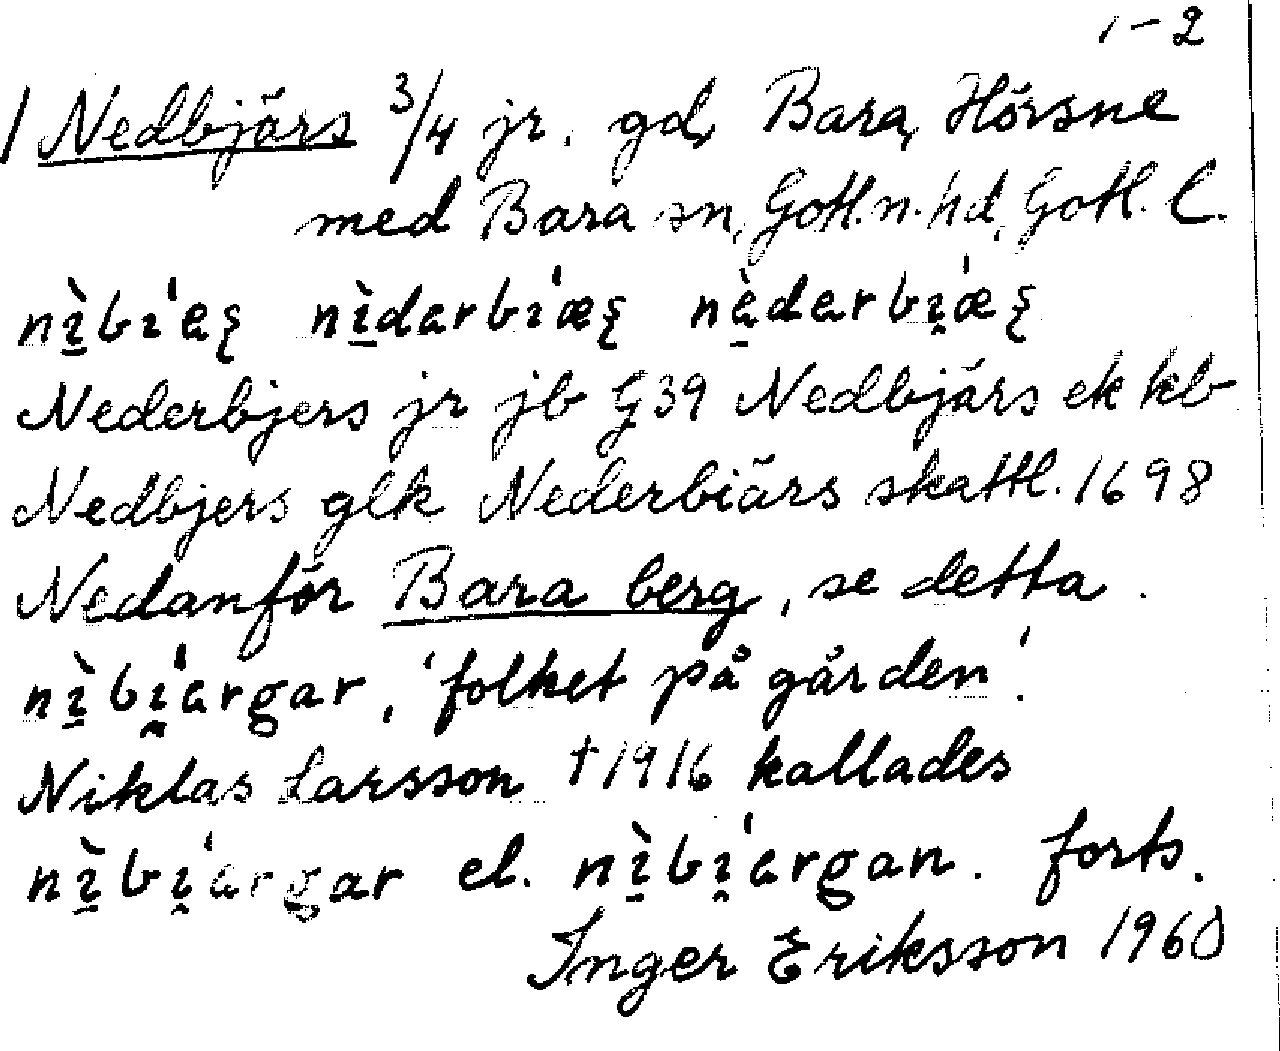 1-2
1 Nedbjärs 3/4 jr. gd, Bara, Hörsne
med Bara sn, Gotl.n.hd, Gotl. C.
nìbıˈaʂ nìdarbıˈæʂ nèdarbıˈæʂ
Nederbjers jr jb G39 Nedbjärs ek kb
Nedbjers glk Nederbiärs skattl. 1698
Nedanför Bara berg, se detta.
nìbıˈargar, 'folket på gården'.
Niklas Larsson †1916 kallades
nìbıˈargar el. nìbıˈargan. forts.
Inger Eriksson 1960